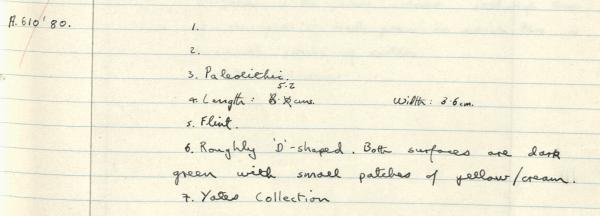 A.610'80.
1.
2.
3. Paleolithic.
5.2
4. Length: cms. Width: 3.6cm.
5. Flint.
6. Roughly 'D'-shaped. Both surfaces are dark
green with small patches of yellow/cream.
7. Yates Collection